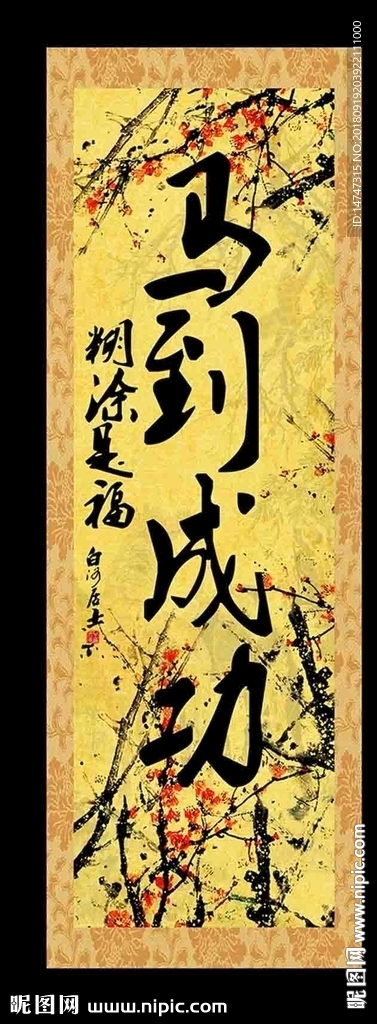 马到成功
糊涂是福
白河居士
ID:14747315 NO:20180919203922111000
昵图网 www.nipic.com
昵图网 www.nipic.com